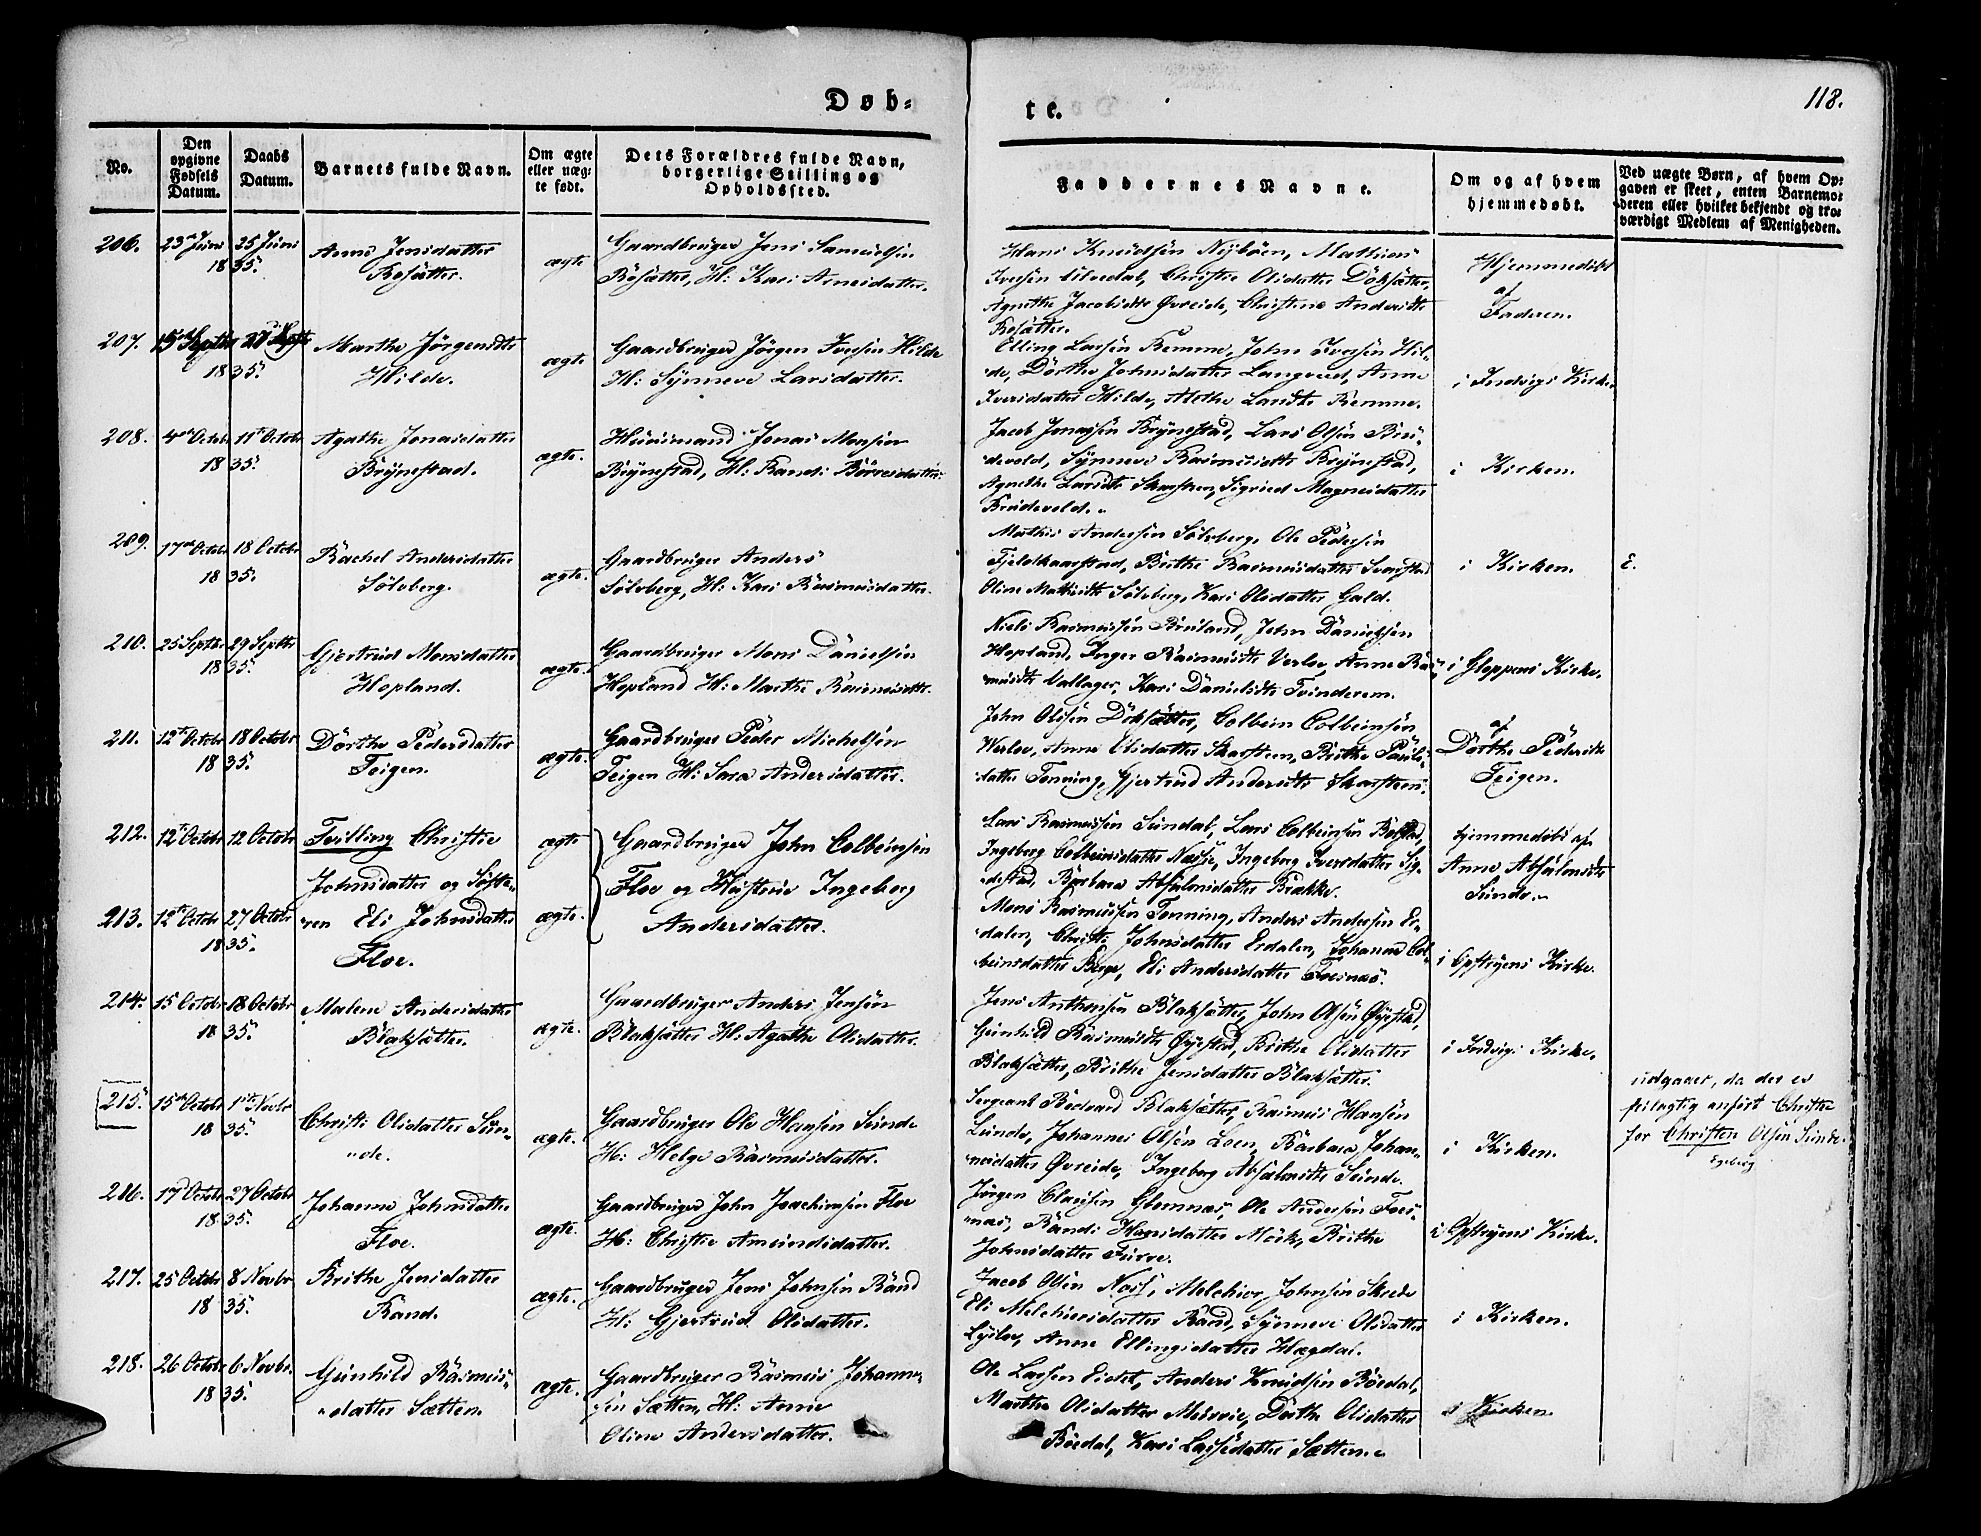 118.
Døb-
te.
No.
Den opgivne Fødsels Datum.
Daabs Datum.
Barnets fulde Navn.
Om ægte eller uæg-
te født.
Dets Forældres fulde Navn,
borgerlige Stilling og
Opholdssted.
Faddernes Navne.
Om og af hvem
hjemmedøbt.
Ved uægte Børn, af hvem Op-
gaven er skeet, enten Barnemo-
deren eller hvilket bekjendt og tro-
værdigt Medlem af Menigheden.
206. 23 Juni 25 Juni
1835.
Anne Jensdatter
Rosætter.
ægte
Gaardbruger Jens Samuelsen
Rosætter, H: Kari Arnesdatter.
Hans Knudsen Nesløen, Mathias
Iversen Ulvedal, Christie Olsdatter Döksætter,
Agnethe Jacobsdtr Øvreide, Christine Andersdtr
Rosætter.
Hjemmedöbt
af
Faderen.
207. 15 Septbr 27 Septbr
1835.
Marthe Jørgensdtr
Hilde.
ægte
Gaardbruger Jørgen Iversen Hilde
H: Synneve Larsdatter.
Elling Larsen Remme, John Iversen Hil-
de, Dorthe Johnsdatter Langved, Anne
Iversdatter Hilde, Remme.
i Indvigs Kirke
208. 4de Octobr 11te Octobr
1835.
Agathe Jonasdatter
Brynestad.
ægte.
Huusmand Jonas Monsen
Brynestad, H: Randi
Jacob Jonassen Brynestad, Lars Olsen Bru-
develd, Synneve Rasmusdtr Brynestad,
Agnethe Larsdtr Skarsteen, Sigried Magnesdatter
Brudeveld.
i Kirken.
209. 17de Octobr 18 Octobr
1835.
Rachel Andersdatter
Sölvberg.
ægte.
Gaardbruger Anders
Sölvberg, H: Kari Rasmusdatter.
Mathis Andersen Sölvberg, Ole Pedersen
Fjeldkaarstad, Birthe Rasmusdatter Svarstad
Oline Mathisdtr Sölvberg, Kari Olsdatter Gald.
i Kirken.
E.
210. 25 Septbr 29 Septbr
1835.
Gjertrud Monsdatter
Hopland.
ægte.
Gaardbruger Mons Danielsen
Hopland H: Marthe Rasmusdtr.
Niels Rasmussen Bruland, John Danielsen
Hopland, Inger Rasmusdtr Verlo, Anne Ras-
musdtr Vallager, Kari Danielsdtr Tvinderem.
i Gloppens Kirke.
211. 12te Octobr 18 Octobr
1835.
Dorthe Pedersdatter
Teigen.
ægte.
Gaardbruger Peder Michelsen
Teigen H: Sara Andersdatter.
John Olsen Döksætter, Colbein Colbeinsen
Verlo, Anne Olsdatter Skarsteen, Birthe Pauls-
datter Tenning, Gjertrud Andersdtr Skarsteen.
af
Dorthe Pedersdtr
Teigen.
212. 12te Octobr 12 Octobr
Tvilling Christie
Johnsdatter og Søste-
ægte
Gaardbruger John Colbeinsen
Floe og Hustrue Ingeborg
Andersdatter.
Lars Rasmussen Sundal, Lars Colbeinsen Bolstad,
Ingeborg Colbeinsdatter Næsje, Ingeborg Iversdatter Sig-
destad, Barbara Absalonsdatter Brække.
hjemmedöbt af
Anne Absalonsdtr
Sunde.
213. 12te Octobr 27 Octobr
1835.
ren Eli Johnsdatter
Floe.
ægte.
Mons Rasmussen Tenning, Anders Andersen Er-
dalen, Christi Johnsdatter Erdalen, Johanne Col-
beinsdatter Berge, Eli Andersdatter Foesnæs.
i Opstryens Kirke.
214. 15 Octobr 18 Octobr
1835.
Malene Andersdatter
Blaksætter.
ægte.
Gaardbruger Anders Jensen
Blaksætter H: Agathe Olsdatter.
Jens Anthonsen Blaksætter, John Olsen Øyestad,
Gunhild Rasmusdtr Øyestad, Brithe Olsdatter
Blaksætter, Brithe Jensdatter Blaksætter.
i Indvigs Kirke.
215. 15de Octobr 1ste Novbr
1835.
Christi Olsdatter Sun-
de.
ægte.
Gaardbruger Ole Hansen Sunde
H: Helge Rasmusdatter.
Sergeant Blaksætter, Rasmus Hansen
Sunde, Johannes Olsen Loen, Barbara Johan-
nesdatter Øvreide, Ingeborg Absalonsdtr Sunde.
i Kirken.
udgaaer, da der er
feilagtig anført Christie
for Christen Olsen Sunde.
216. 17d Octobr 27 Octobr
1835.
Johanne Johnsdatter
Floe.
ægte.
Gaardbruger John Joachimsen Floe
H: Christie Amundsdatter.
Jørgen Claussen Glomnæs, Ole Andersen Foes-
næs, Randi Hansdatter Mörk, Brithe
Johnsdatter Furre.
i Opstryens Kirke.
217. 25 Octobr 8 Novbr
1835.
Brithe Jensdatter
Rand.
ægte.
Gaardbruger Jens Johnsen Rand
H: Gjertrud Olsdatter.
Jacob Olsen Nos, Melchior Johnsen Skrede
Eli Melchiorsdatter Rand, Synneve Olsdatter
Lyslo, Anne Ellingsdatter Hægdal.
i Kirken.
218. 26 Octobr 6 Novbr.
1835.
Gunhild Rasmus-
datter Sætten.
ægte.
Gaardbruger Rasmus Johanne-
sen Sætten, H: Anne
Oline Andersdatter.
Ole Larsen Eidet, Anders Knudsen Böedal,
Marthe Olsdatter Murrie, Dorthe Olsdatter
Böedal, Kari Lassedatter Sætten.
i Kirken